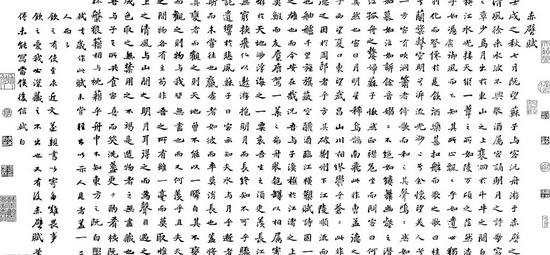 赤壁賦
壬戌之秋七月既望蘇子與客泛舟游於赤壁之
下清風徐來水波不興舉酒屬客誦明月之詩歌窈窕
之章少焉月出於東山之上徘徊於斗牛之間白露
橫江水光接天縱一葦之所如凌萬頃之茫然浩浩
乎如馮虛御風而不知其所止飄飄乎如遺世獨立羽
化而登仙於是飲酒樂甚扣舷而歌之歌曰桂棹兮
蘭槳擊空明兮泝流光渺渺兮余懷望美人兮天
一方客有吹洞簫者倚歌而和之其聲嗚嗚然如怨
如慕如泣如訴餘音嫋嫋不絕如縷舞幽壑之潛蛟
泣孤舟之嫠婦蘇子愀然正襟危坐而問客曰何為
其然也客曰月明星稀烏鵲南飛此非曹孟德之詩
乎西望夏口東望武昌山川相繆鬱乎蒼蒼此非孟德之
困於周郎者乎方其破荊州下江陵順流而東也
舳艫千里旌旗蔽空釃酒臨江橫槊賦詩固一世之
雄也而今安在哉況吾與子漁樵於江渚之上侶
魚蝦而友麋鹿駕一葉之扁舟舉匏樽以相屬寄蜉蝣
於天地渺浮海之一粟哀吾生之須臾羨長江之無
窮挾飛仙以遨遊抱明月而長終知不可乎驟得
託遺響於悲風蘇子曰客亦知夫水與月乎逝者如
斯而未嘗往也盈虛者如彼而卒莫消長也蓋將自
其變者而觀之則天地曾不能以一瞬自其不變者而
觀之則物與我皆無盡也而又何羨乎且夫天地之
間物各有主苟非吾之所有雖一毫而莫取惟江上
之清風與山間之明月耳得之而為聲目遇之而
成色取之無禁用之不竭是造物者之無盡藏也而
吾與子之所共食客喜而笑洗盞更酌肴核既盡杯
盤狼藉相與枕藉乎舟中不知東方之既白
軾去歲作此賦未嘗輕出以示人見者蓋一二
人而已
欽之有使至求近文遂親書以寄多難畏事
欽之愛我必深藏之不出也又有後赤壁賦筆
倦未能寫當俟後信軾白